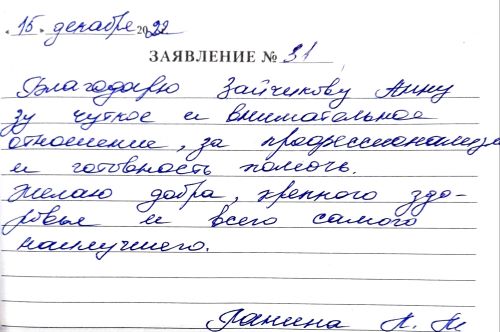 15 декабря 2022
ЗАЯВЛЕНИЕ № 31
Благодарю Зайчикову Анну
зу чуткое и внимательное
отношение, за профессионализм
и готовность помочь.
Желаю добра, крепкого здо-
ровья и всего самого
наилучшего.
Панина Л. Н